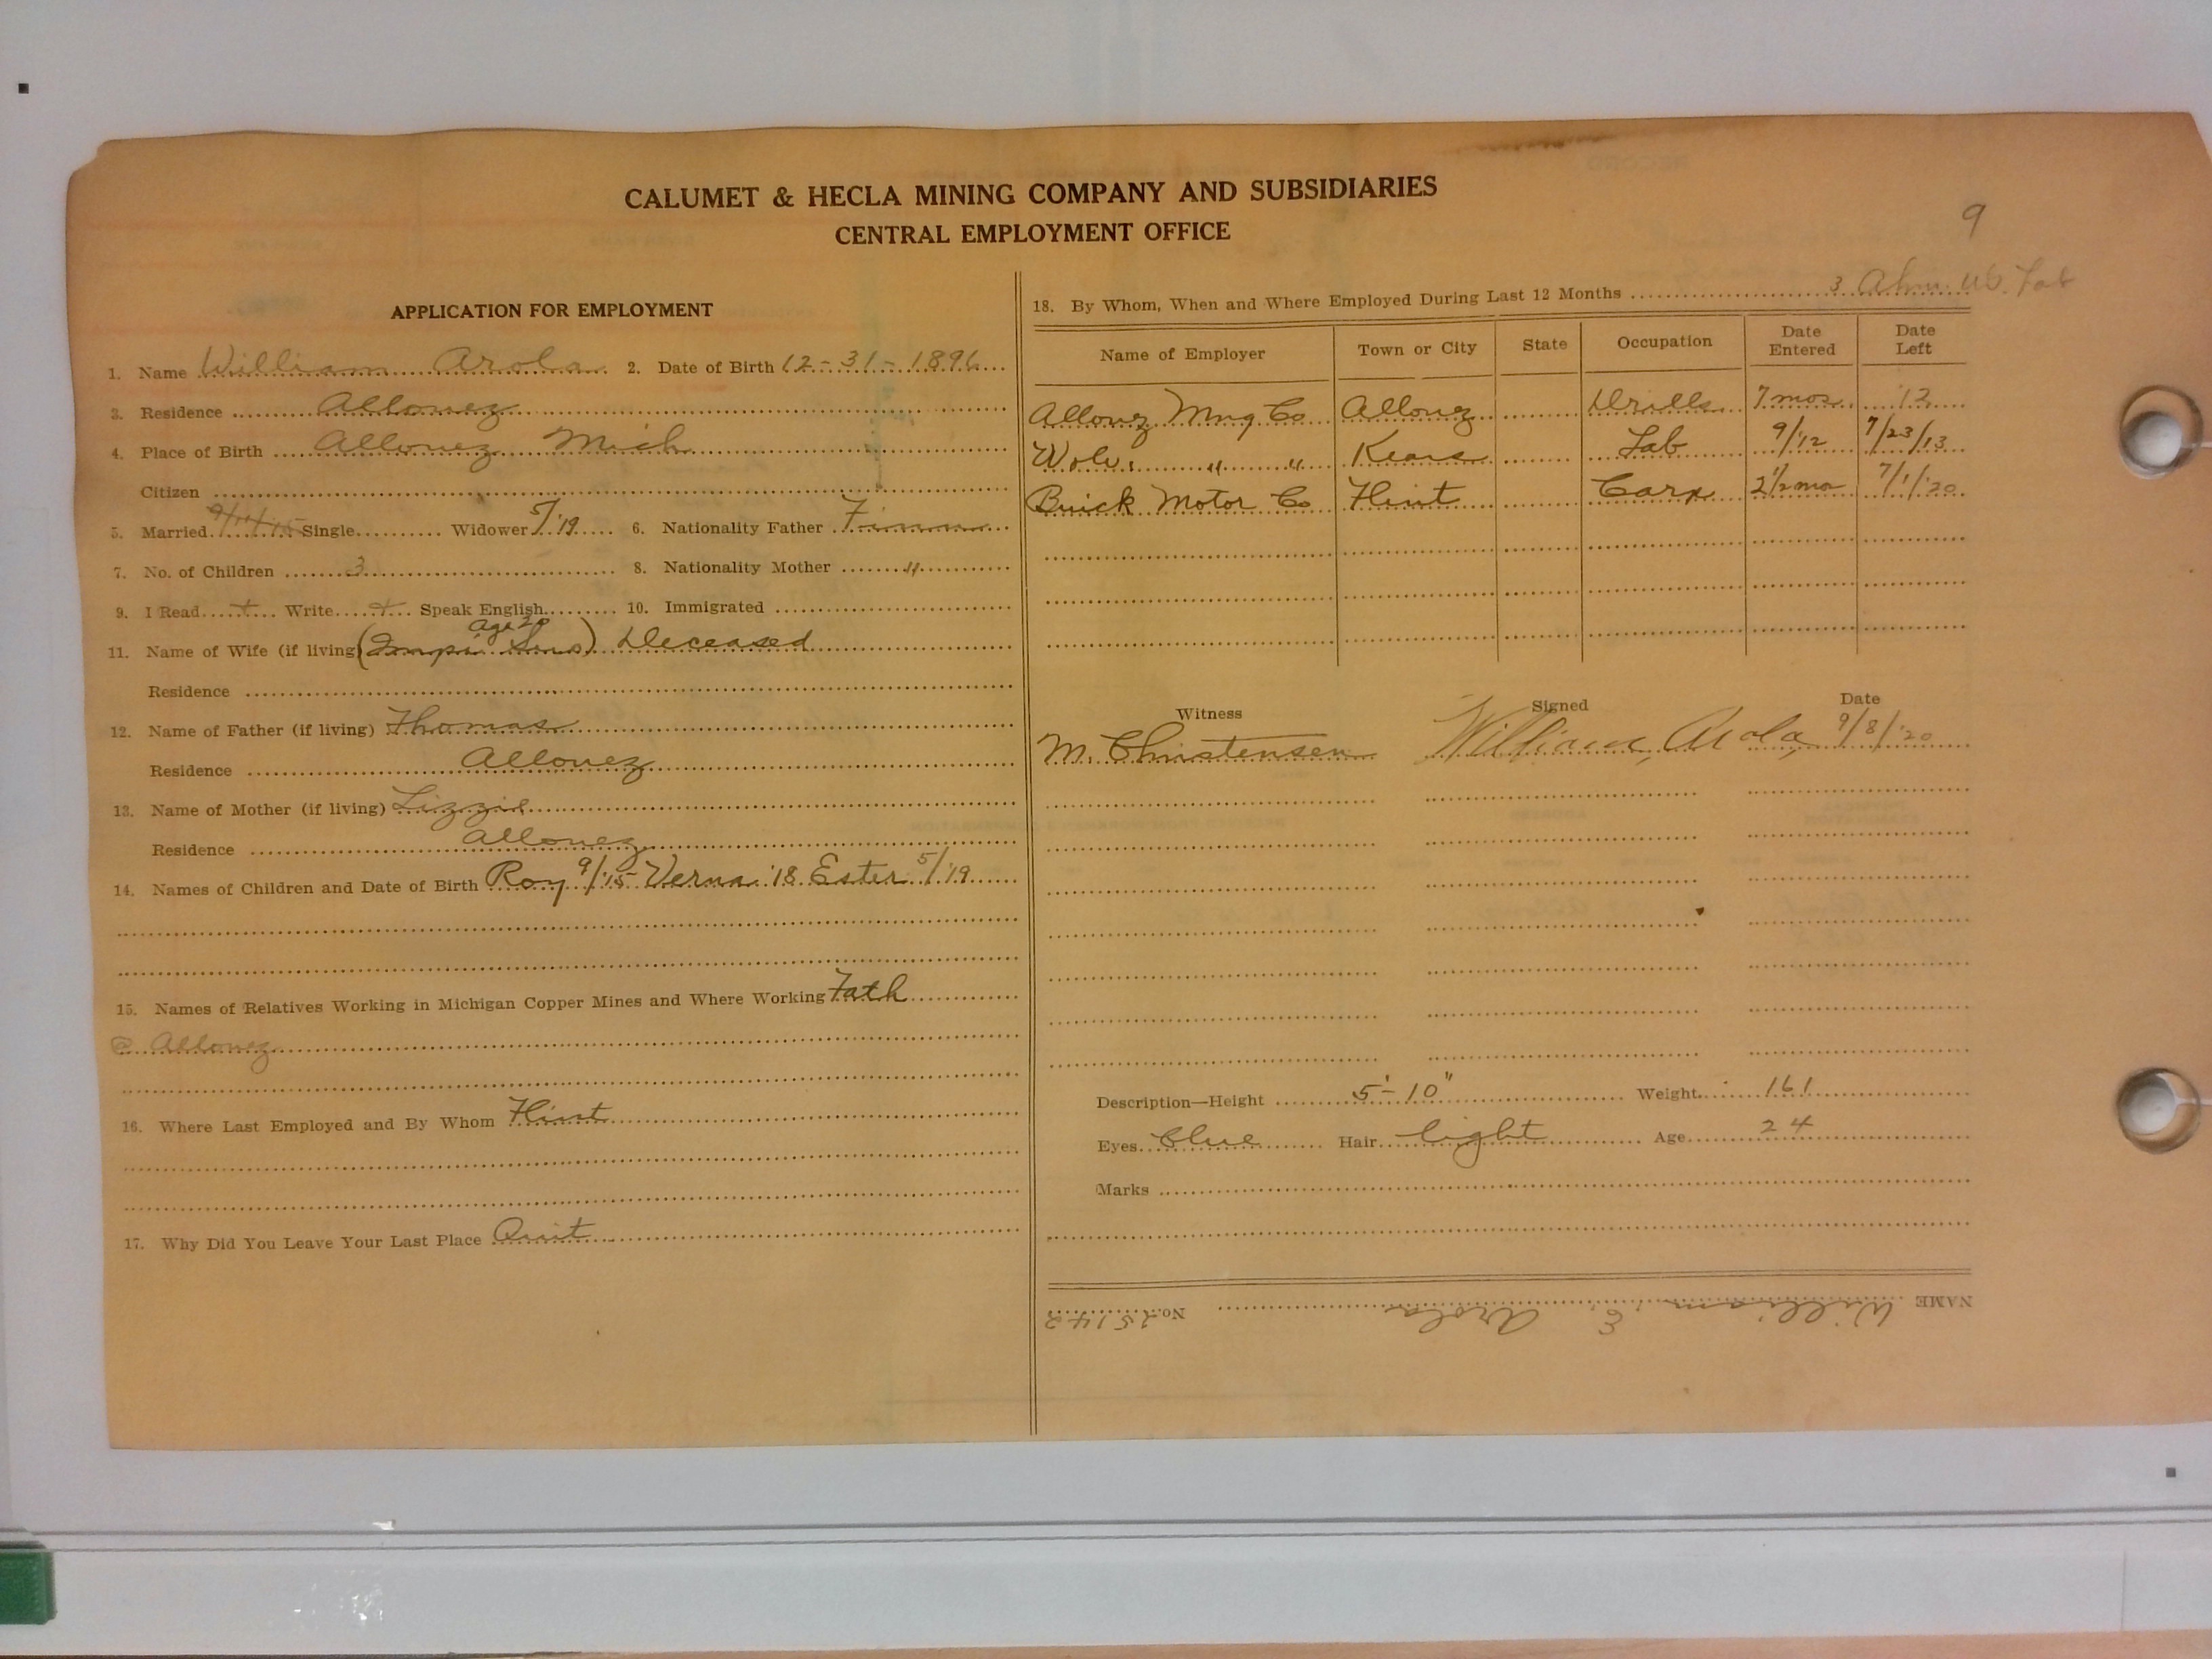 CALUMET & HECLA MINING COMPANY AND SUBSIDIARIES
CENTRAL EMPLOYMENT OFFICE
9
APPLICATION FOR EMPLOYMENT
1. Name William Arola 2. Date of Birth 12-31-1896
3. Residence Allouez
4. Place of Birth Allouez Mich
Citizen
5. Married Single Widower 5/'19 6. Nationality Father Finn
7. No. of Children 3 8. Nationality Mother "
9. I Read + Write + Speak English 10. Immigrated
age 20
11. Name of Wife (if living) (Impi ) Deceased
Residence
12. Name of Father (if living) Thomas
Residence Allouez
13. Name of Mother (if living) Lizzie
Residence Allouez
14. Names of Children and Date of Birth Roy 9/'15 Verna '18 Ester 5/'19
15. Names of Relatives Working in Michigan Copper Mines and Where Working Fath
@ Allouez
16. Where Last Employed and By Whom Flint
17. Why Did You Leave Your Last Place Quit
18. By Whom, When and Where Employed During Last 12 Months 3 Ahm. Lab
Name of Employer Town or City State Occupation Date Entered Date Left
Allouez Mng Co Allouez Drills 7 mos '12
Wolv. " " Kears Lab 9/12 7/23/13
Buick Motor Co Flint Carp 2 1/2 mo 7/1/'20
Witness Signed Date
M. Christensen William Arola 9/8/'20
Description—Height 5'-10" Weight 161
Eyes Blue Hair light Age 24
Marks
NAME William E. Arola No. 25142